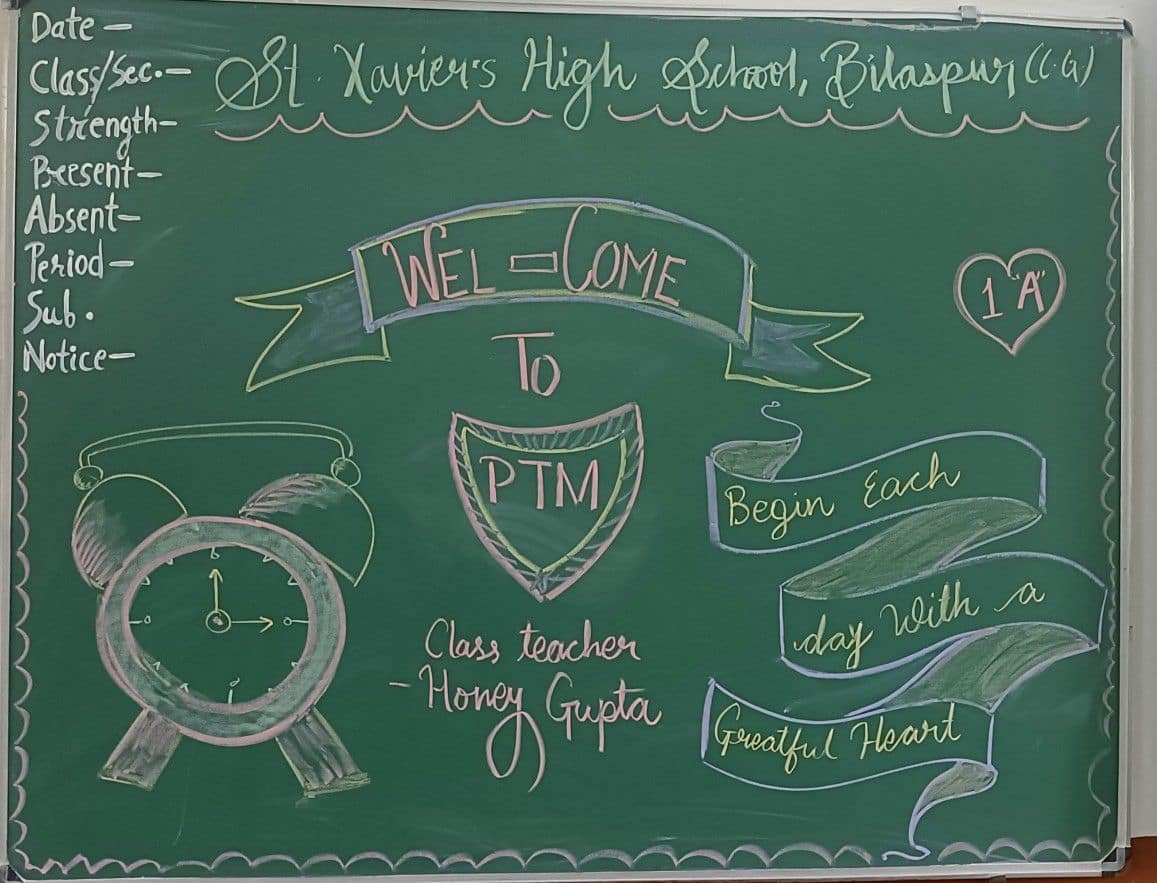 Date -
Class/Sec. -
Strength-
Present-
Absent-
Period-
Sub.
Notice-
St. Xavier's High School, Bilaspur (C.G.)
WEL-COME
To
PTM
1 "A"
Class teacher
- Honey Gupta
Begin Each
day With a
Greatful Heart